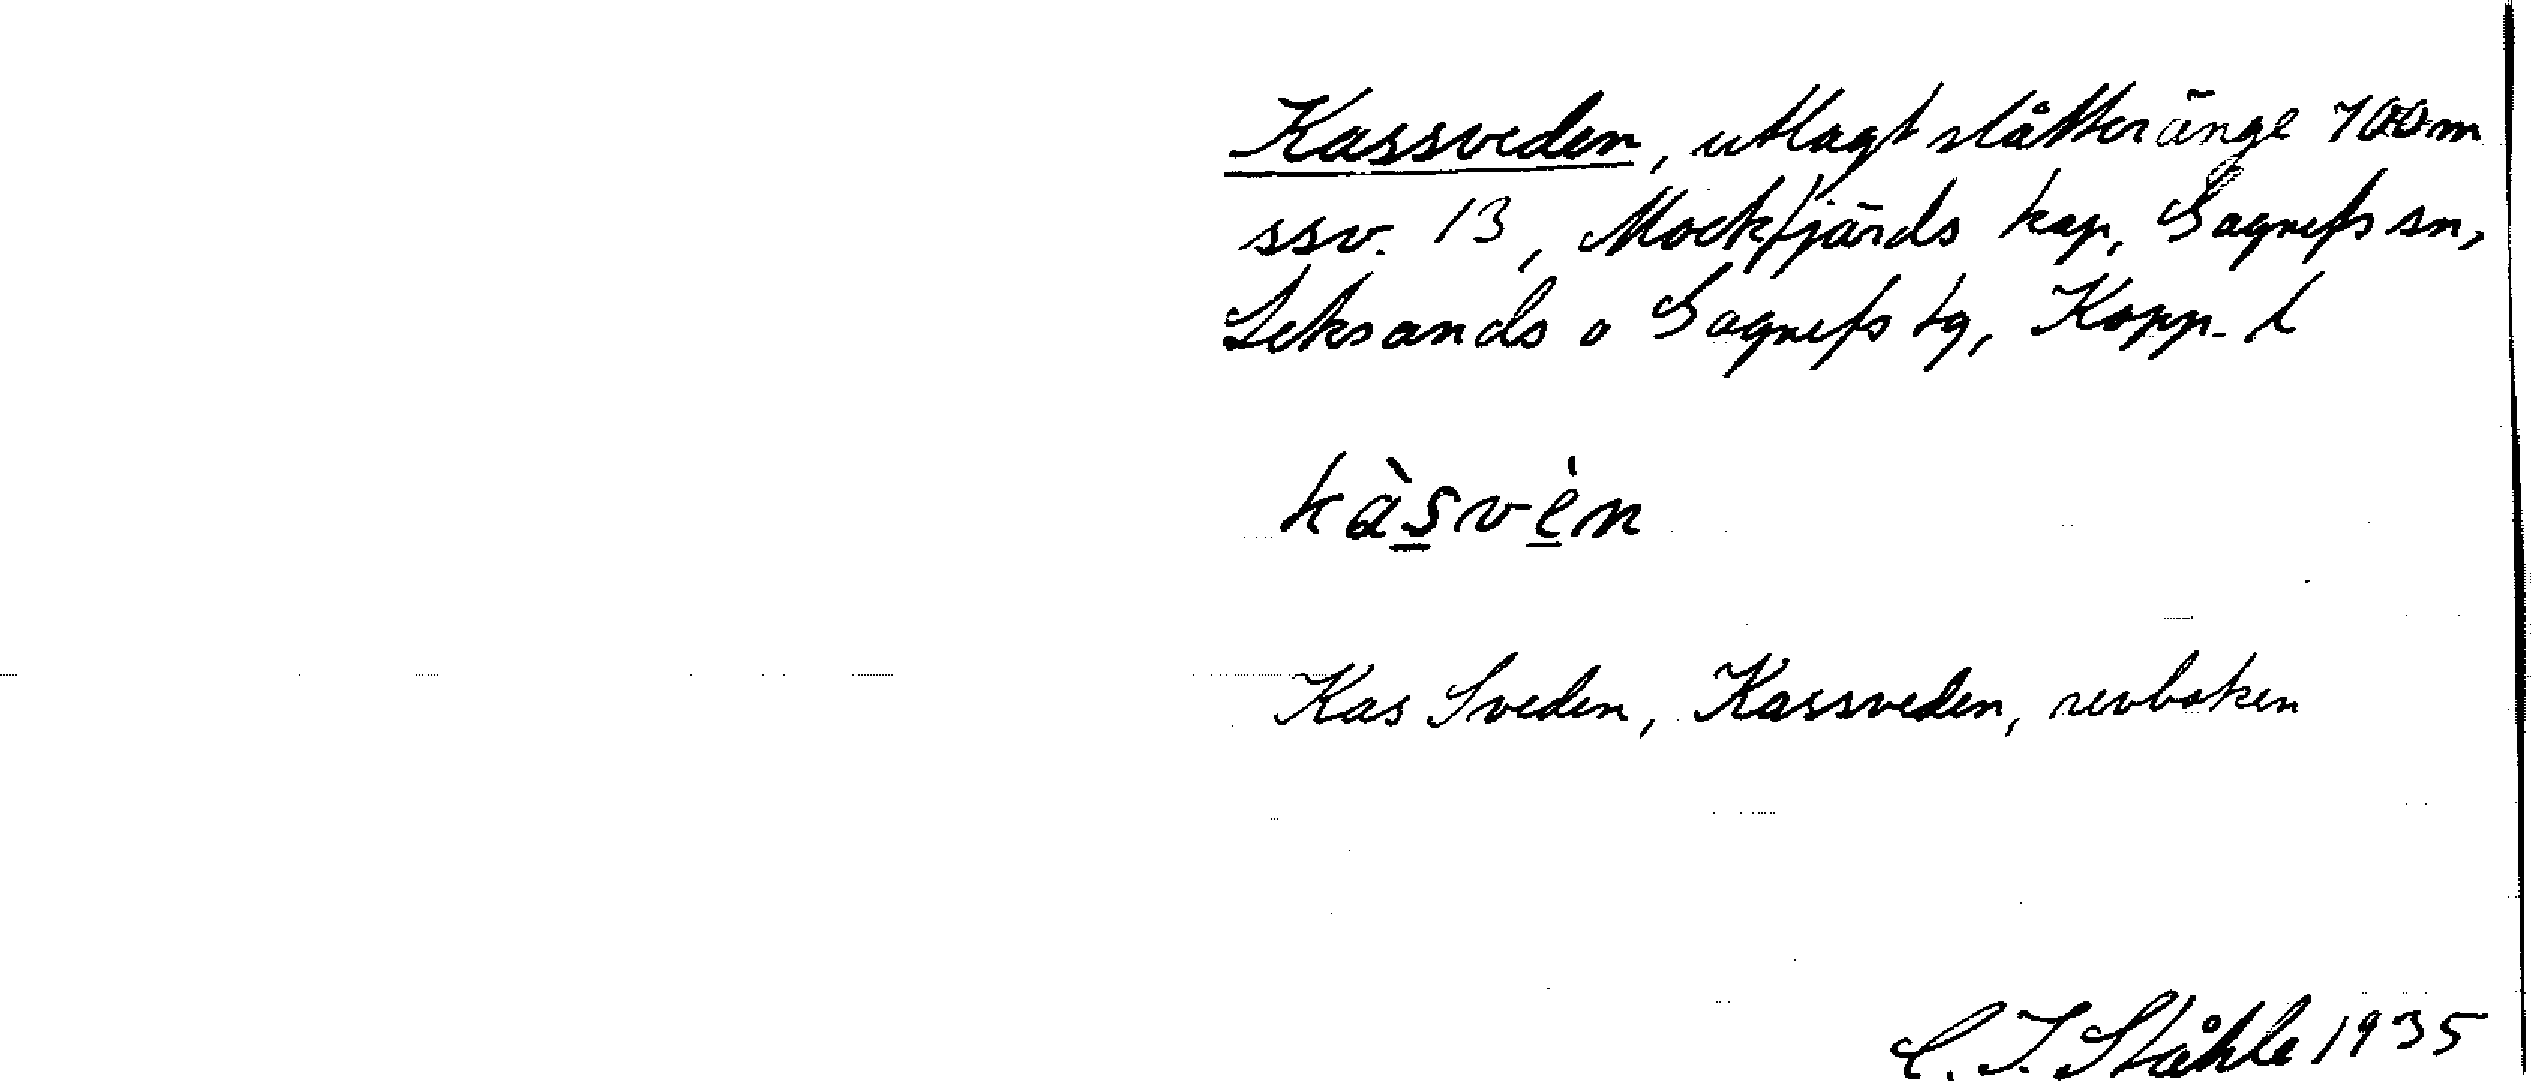 Kassveden, utlagt slåtteränge 700 m
ssv. 13, Mockfjärds kap, Gagnefs sn,
Leksands o Gagnefs tg, Kopp. l
kàsvèn
Kas Sveden, Kassveden, revboken
C. I. Ståhle 1935